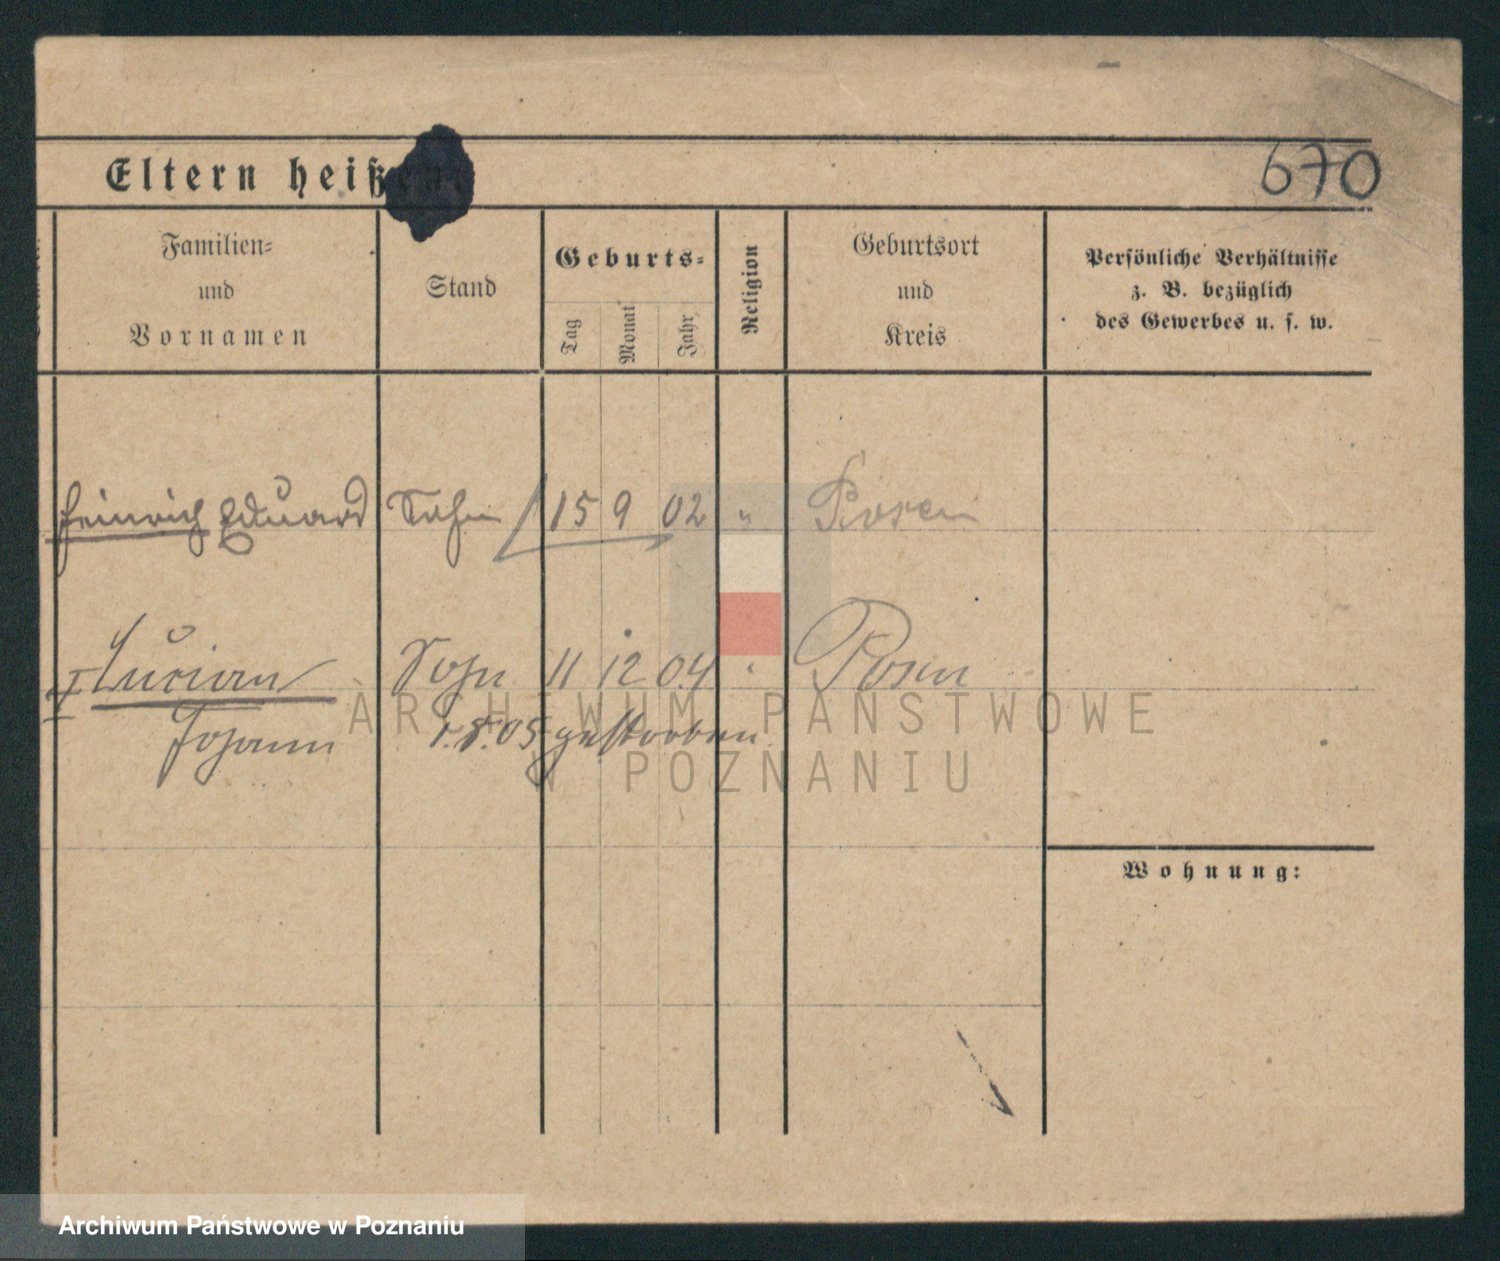 Eltern heißen:
670
Familien-
und
Vornamen
Stand
Geburts-
Tag
Monat
Jahr
Religion
Geburtsort
und
Kreis
Persönliche Verhältnisse
z. B. bezüglich
des Gewerbes u. s. w.
Heinrich Eduard Sohn 15 9 02 " Posen
I Lucian Sohn 11 12 04 " Posen
Johann 1.8.05 gestorben
ARCHIWUM PAŃSTWOWE
W POZNANIU
Wohnung:
Archiwum Państwowe w Poznaniu